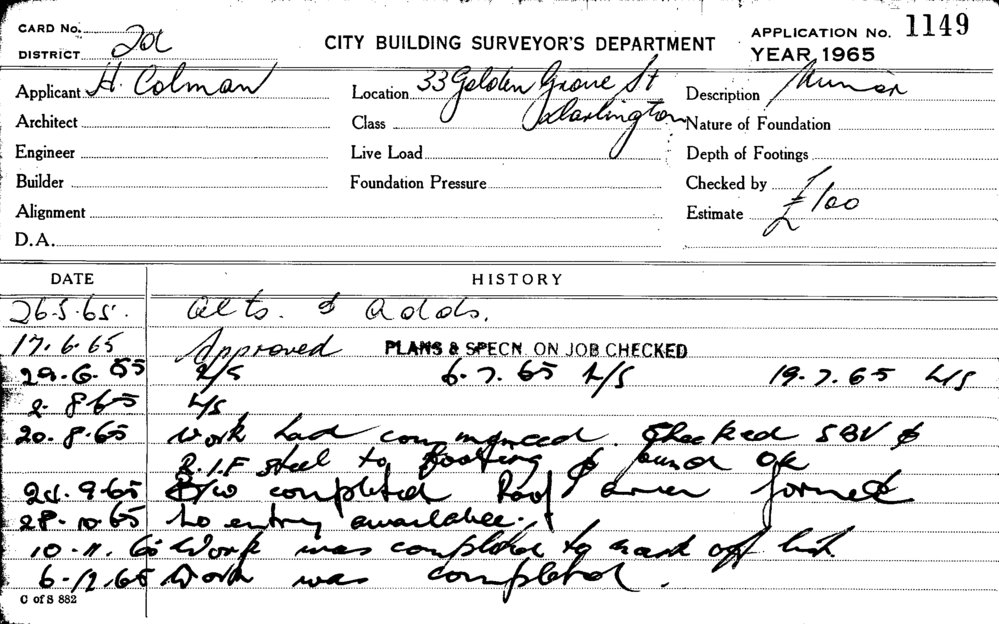 CARD No.
DISTRICT
CITY BUILDING SURVEYOR'S DEPARTMENT
APPLICATION No. 1149
YEAR, 1965
Applicant H. Colman
Location 33 Golden Grove St
Darlington
Description Minor
Architect
Class
Nature of Foundation
Engineer
Live Load
Depth of Footings
Builder
Foundation Pressure
Checked by
Alignment
Estimate £100
D.A.
DATE HISTORY
26.5.65. Alts. & Adds.
17.6.65 Approved PLANS & SPECN. ON JOB CHECKED
29.6.65 L/S 6.7.65 L/S 19.7.65 L/S
2.8.65 L/S
20.8.65 Work had commenced. Checked SBV &
R.I.F steel to footing & found OK
9.65 B/W completed Roof formed
28.10.65 No entry available.
10.11.65 Work was completed to
6.12.65 Work was completed.
C of S 882